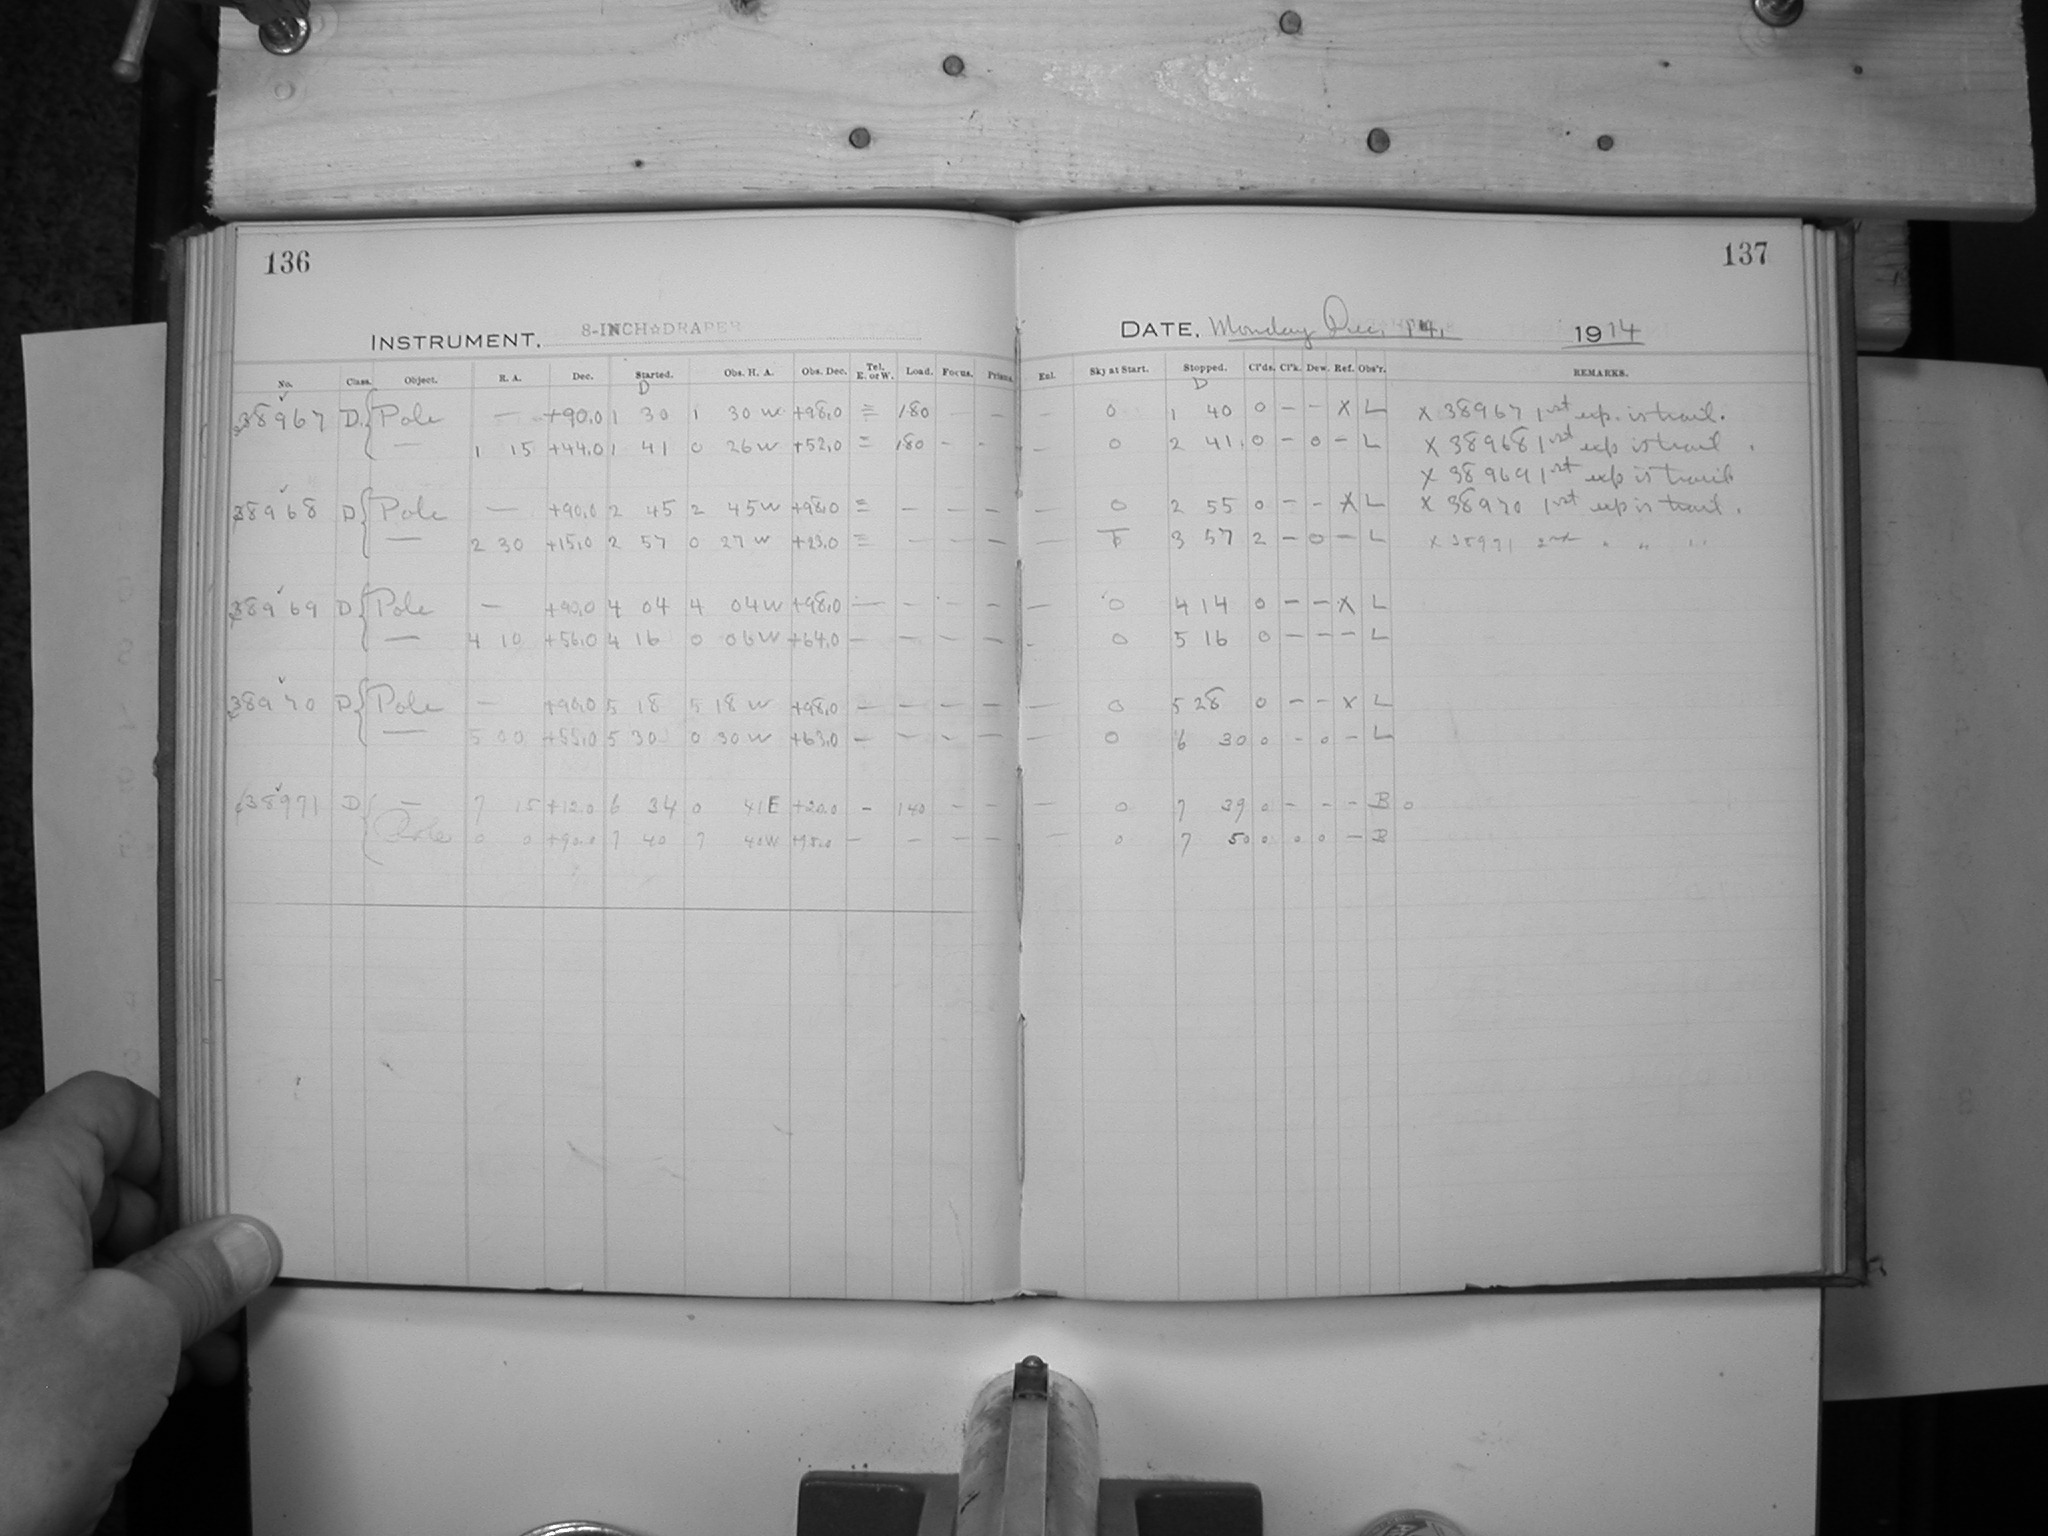 136
137
INSTRUMENT. 8-INCH☆DRAPER
DATE. Monday Dec. 14, 1914
No. Class. Object. R. A. Dec. Started. Obs. H. A. Obs. Dec. Tel. E. or W. Load. Focus. Prism. Enl. Sky at Start. Stopped. Cl'ds. Cl'k. Dew. Ref. Obs'r. REMARKS.
D D
38967 D { Pole — +90.0 1 30 1 30 W +98.0 = 180 — — 0 1 40 0 – – X L X 38967 1st exp. is trail.
— 1 15 +44.0 1 41 0 26 W +52.0 = 180 – – — 0 2 41 0 – 0 – L X 38968 1st exp is trail.
X 38969 1st exp is trail.
38968 D { Pole — +90.0 2 45 2 45 W +98.0 = – – – — 0 2 55 0 – – X L X 38970 1st exp is trail.
— 2 30 +15.0 2 57 0 27 W +23.0 = – – – — F 3 57 2 – 0 – L X 38971 2nd " " "
38969 D { Pole — +90.0 4 04 4 04 W +98.0 — – – – — 0 4 14 0 – – X L
— 4 10 +56.0 4 16 0 06 W +64.0 — – – – - 0 5 16 0 – – – L
38970 D { Pole — +90.0 5 18 5 18 W +98.0 — – – – — 0 5 28 0 – – X L
— 5 00 +55.0 5 30 0 30 W +63.0 – – – – — 0 6 30 0 - 0 – L
38971 D { — 7 15 +12.0 6 34 0 41 E +20.0 – 140 – – — 0 7 39 0 – – – B 0
Pole 0 0 +90.0 7 40 7 40 W +98.0 – – – – — 0 7 50 0 0 0 – B